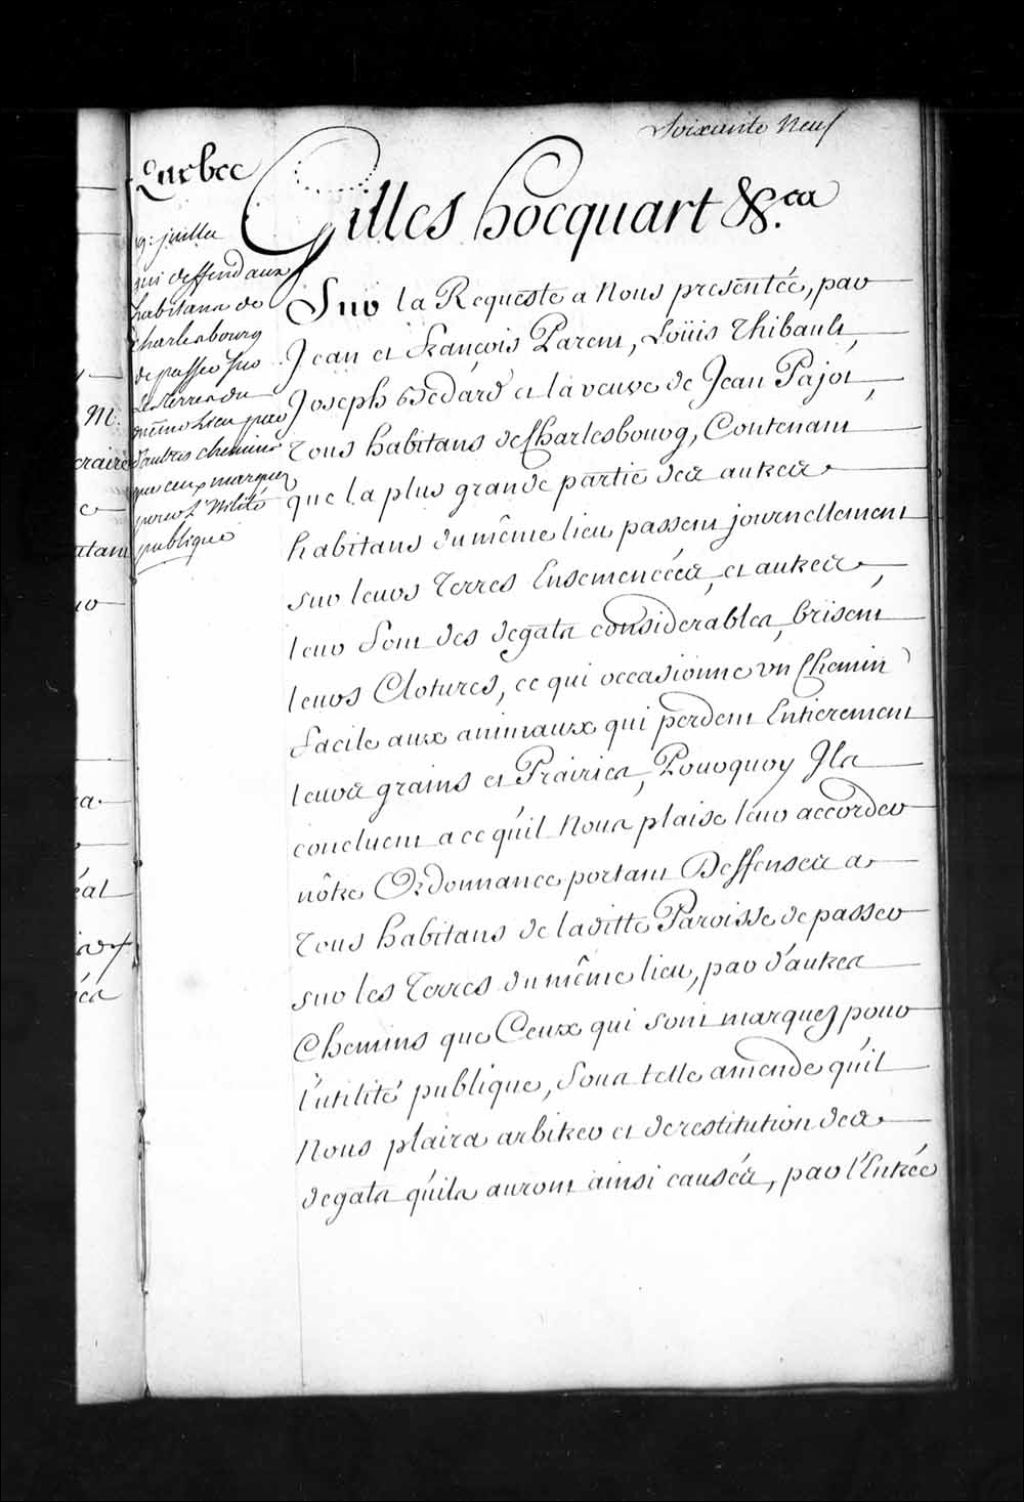 Soixante Neuf
Quebec
Gilles hocquart &.ca
9: juillet
qui deffend aux
habitans de
Charlesbourg
de passer sur
les terres du
même Lieu par
d'autres chemins
que ceux marquez
pour L'utilité
publique
Sur la Requeste a Nous presentée, par
Jean et François Parent, Loüis Thibault,
Joseph Bedard et la veuve de Jean Pajot,
Tous habitans de Charlesbourg, Contenant
que la plus grande partie des autres
habitans du même lieu passent journellement
sur leurs Terres Ensemencées, et autres,
leur font des degats considerables, brisent
leurs Clotures, ce qui occasionne un Chemin
facile aux animaux qui perdent Entierement
leurs grains et Prairies, Pourquoy Ils
concluent a ce qu'il Nous plaise leur accorder
nôtre Ordonnance portant Deffenses a
Tous habitans de laditte Paroisse de passer
sur les Terres du même lieu, par d'autres
Chemins que Ceux qui sont marquez pour
l'utilité publique, sous telle amende qu'il
Nous plaira arbitrer et de restitution des
degats qu'ils auront ainsi causés, par l'Entrée